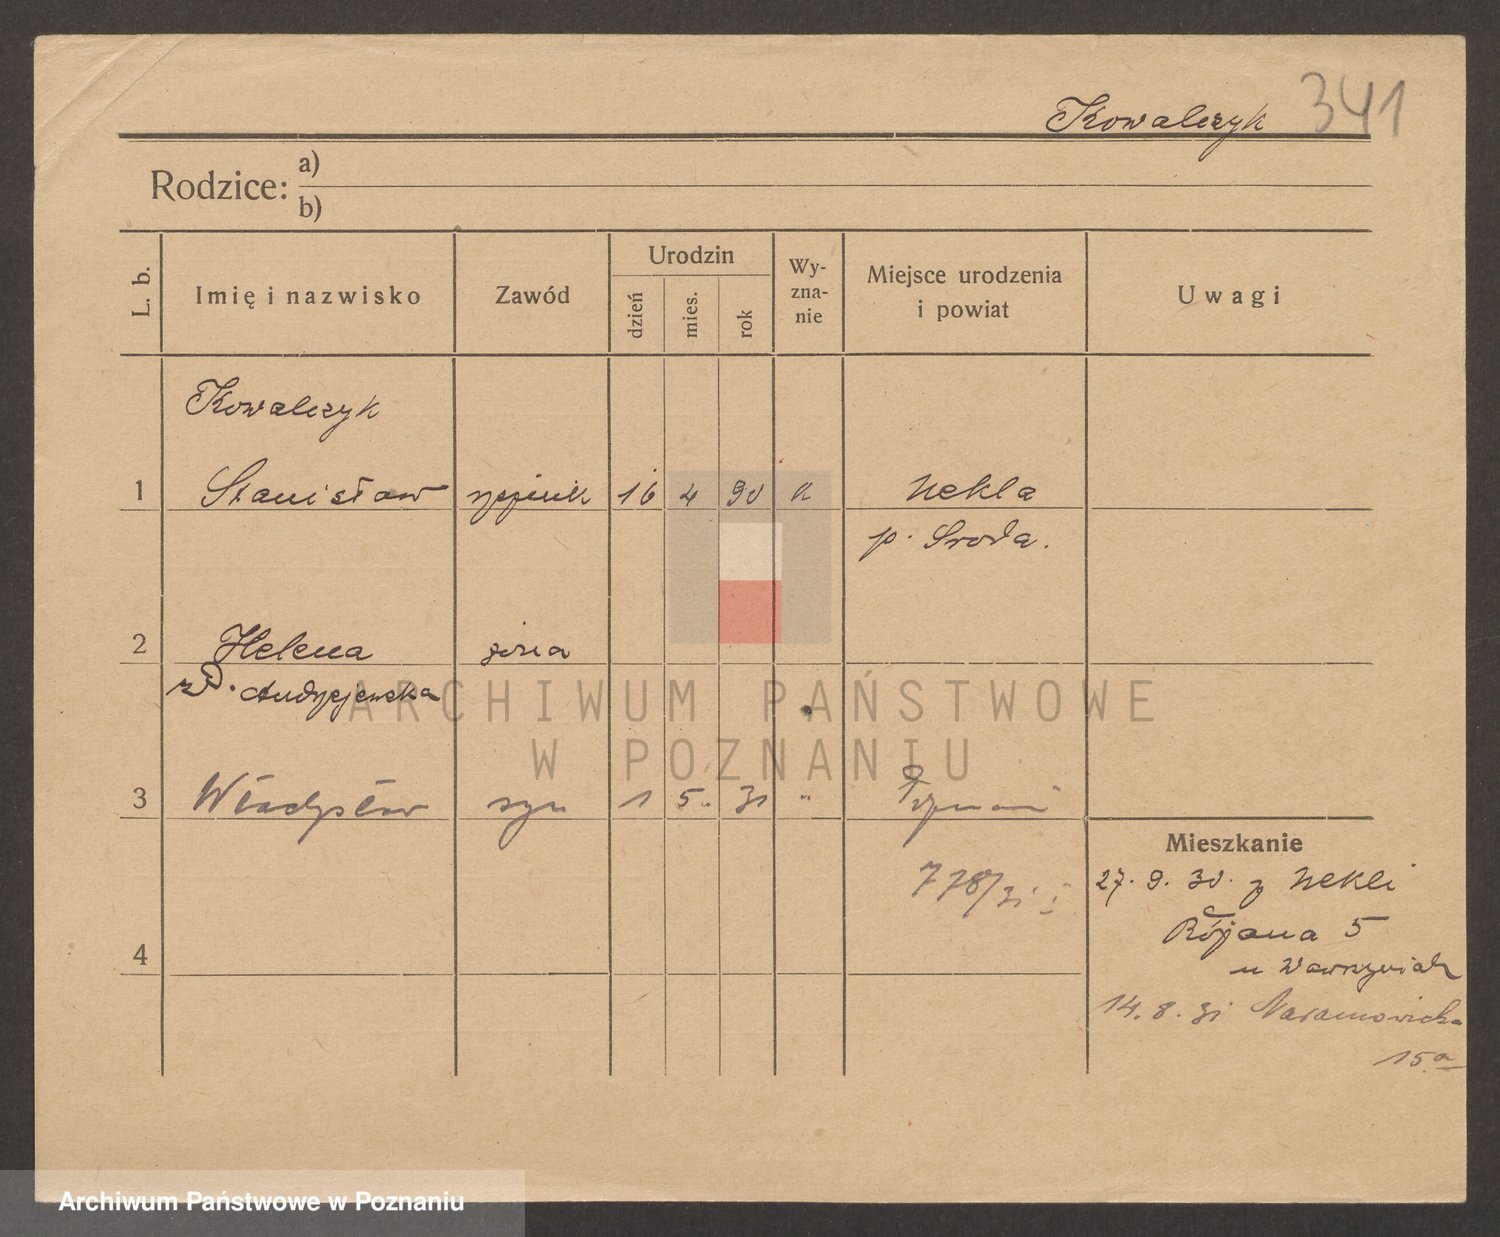 Kowalczyk 341
Rodzice: a)
b)
L. b.
Imię i nazwisko
Zawód
Urodzin
dzień
mies.
rok
Wy-
zna-
nie
Miejsce urodzenia
i powiat
Uwagi
Kowalczyk
1 Stanisław 16 4 90 k Nekla
p. Sroda.
2 Helena żona
zd. Andrzejewska
ARCHIWUM PAŃSTWOWE
W POZNANIU
3 Władysław syn 1 5. 31 " Poznań
778/31 I
Mieszkanie
27. 9. 30. z Nekli
Różana 5
u Wawrzyniak
14. 8. 31 Naramowicka
15a
4
Archiwum Państwowe w Poznaniu